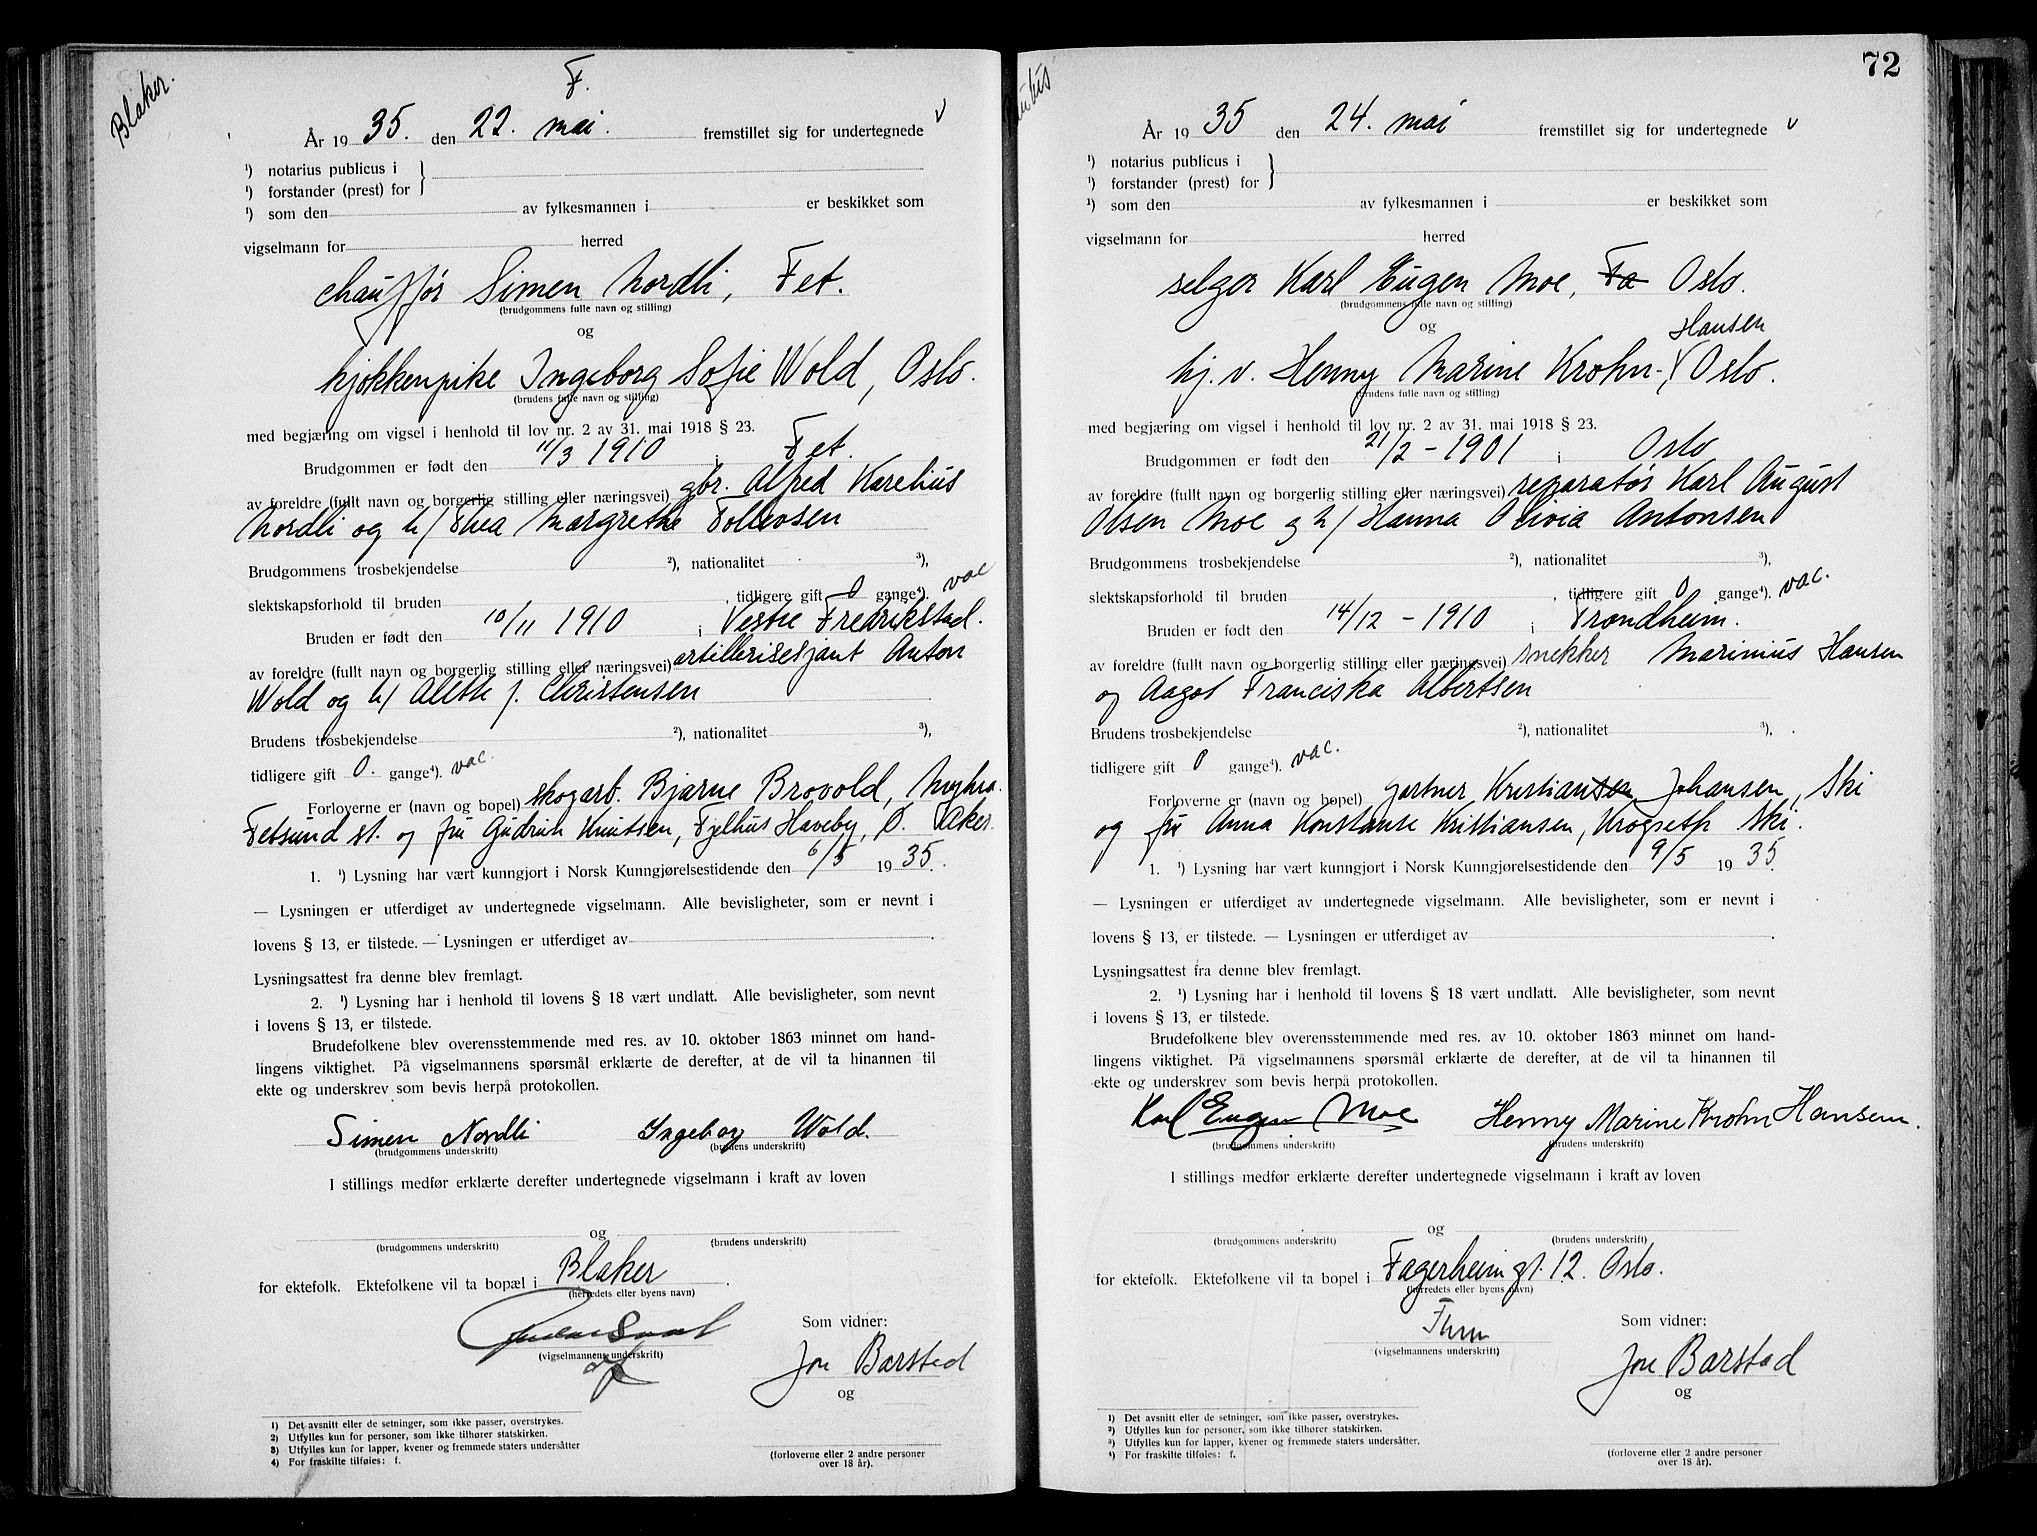 Blaker.
F.
År 1935. den 22. mai. fremstillet sig for undertegnede v
¹) notarius publicus i
¹) forstander (prest) for
¹) som den av fylkesmannen i er beskikket som
vigselmann for herred
chauffør Simen Nordli, Fet.
(brudgommens fulle navn og stilling)
og
kjøkkenpike Ingeborg Sofie Wold, Oslo.
(brudens fulle navn og stilling)
med begjæring om vigsel i henhold til lov nr. 2 av 31. mai 1918 § 23.
Brudgommen er født den 11/3 1910 i Fet.
av foreldre (fullt navn og borgerlig stilling eller næringsvei) gbr. Alfred Karelius
Nordli og h/ Thea Margrethe Tollevsen
Brudgommens trosbekjendelse ²), nationalitet ³),
slektskapsforhold til bruden , tidligere gift 0 gange⁴). vac
Bruden er født den 10/11 1910 i Vestre Fredrikstad.
av foreldre (fullt navn og borgerlig stilling eller næringsvei) artillerisersjant Anton
Wold og h/ Alette f. Christensen
Brudens trosbekjendelse ²), nationalitet ³),
tidligere gift 0. gange⁴). vac.
Forloverne er (navn og bopel) skogarb. Bjarne Brovold,
Fetsund st. og fru Gudrun Knutsen, Fjelhus Haveby, Ø. Aker.
1. ¹) Lysning har vært kunngjort i Norsk Kunngjørelsestidende den 6/5 1935.
— Lysningen er utferdiget av undertegnede vigselmann. Alle bevisligheter, som er nevnt i
lovens § 13, er tilstede. — Lysningen er utferdiget av
Lysningsattest fra denne blev fremlagt.
2. ¹) Lysning har i henhold til lovens § 18 vært undlatt. Alle bevisligheter, som nevnt
i lovens § 13, er tilstede.
Brudefolkene blev overensstemmende med res. av 10. oktober 1863 minnet om hand-
lingens viktighet. På vigselmannens spørsmål erklærte de derefter, at de vil ta hinannen til
ekte og underskrev som bevis herpå protokollen.
Simen Nordli Ingeborg Wold.
(brudgommens underskrift) (brudens underskrift)
I stillings medfør erklærte derefter undertegnede vigselmann i kraft av loven
og
(brudgommens underskrift) (brudens underskrift)
for ektefolk. Ektefolkene vil ta bopæl i Blaker.
(herredets eller byens navn)
Som vidner:
(vigselmannens underskrift)
Jon Barstad
og
1) Det avsnitt eller de setninger, som ikke passer, overstrykes.
2) Utfylles kun for personer, som ikke tilhører statskirken.
3) Utfylles kun for lapper, kvener og fremmede staters undersåtter
4) For fraskilte tilføies: f.
(forloverne eller 2 andre personer
over 18 år).
72
År 1935 den 24. mai fremstillet sig for undertegnede v
¹) notarius publicus i
¹) forstander (prest) for
¹) som den av fylkesmannen i er beskikket som
vigselmann for herred
selger Karl Eugen Moe, Fa Oslo.
(brudgommens fulle navn og stilling)
og
Hansen
hj. v. Henny Marine Krohn-, Oslo.
(brudens fulle navn og stilling)
med begjæring om vigsel i henhold til lov nr. 2 av 31. mai 1918 § 23.
Brudgommen er født den 21/2 - 1901 i Oslo
av foreldre (fullt navn og borgerlig stilling eller næringsvei) reparatør Karl August
Olsen Moe og h/ Hanna Olivia Antonsen
Brudgommens trosbekjendelse ²), nationalitet ³),
slektskapsforhold til bruden , tidligere gift 0 gange⁴). vac.
Bruden er født den 14/12 - 1910 i Trondheim.
av foreldre (fullt navn og borgerlig stilling eller næringsvei) snekker Marinius Hansen
og Aagot Franciska Albertsen
Brudens trosbekjendelse ²), nationalitet ³),
tidligere gift 0 gange⁴). vac.
Forloverne er (navn og bopel) gartner Kristiansen Johansen, Ski
og fru Anna Konstanse Kristiansen, Ski.
1. ¹) Lysning har vært kunngjort i Norsk Kunngjørelsestidende den 9/5 1935.
— Lysningen er utferdiget av undertegnede vigselmann. Alle bevisligheter, som er nevnt i
lovens § 13, er tilstede. — Lysningen er utferdiget av
Lysningsattest fra denne blev fremlagt.
2. ¹) Lysning har i henhold til lovens § 18 vært undlatt. Alle bevisligheter, som nevnt
i lovens § 13, er tilstede.
Brudefolkene blev overensstemmende med res. av 10. oktober 1863 minnet om hand-
lingens viktighet. På vigselmannens spørsmål erklærte de derefter, at de vil ta hinannen til
ekte og underskrev som bevis herpå protokollen.
Karl Eugen Moe Henny Marine Krohn Hansen.
(brudgommens underskrift) (brudens underskrift)
I stillings medfør erklærte derefter undertegnede vigselmann i kraft av loven
og
(brudgommens underskrift) (brudens underskrift)
for ektefolk. Ektefolkene vil ta bopel i Fagerheimgt. 12. Oslo.
(herredets eller byens navn)
Som vidner:
(vigselmannens underskrift)
Jon Barstad
og
¹) Det avsnitt eller de setninger, som ikke passer, overstrykes.
²) Utfylles kun for personer, som ikke tilhører statskirken.
³) Utfylles kun for lapper, kvener og fremmede staters undersåtter.
⁴) For fraskilte tilføies: f.
(forloverne eller 2 andre personer
over 18 år).